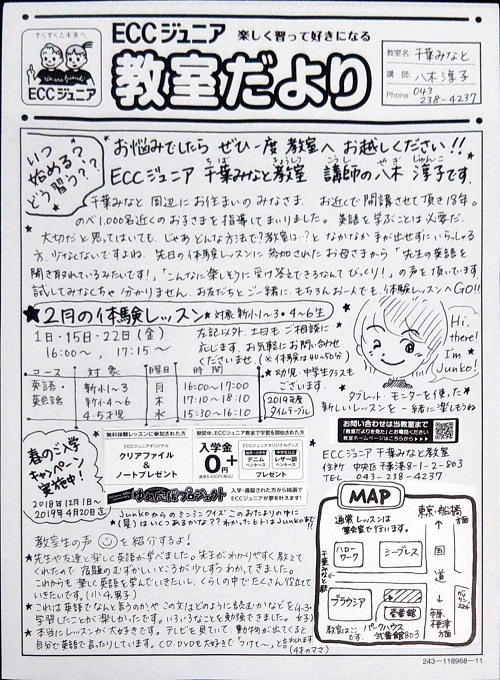 すくすくと未来へ
We are friends!
ECCジュニア
ECCジュニア 楽しく習って好きになる
教室だより
教室名 千葉みなと
講師 八木淳子
Phone 043
238-4237
いつ
始める?
どう習う??
お悩みでしたら ぜひ一度 教室へ お越しください!!
ECCジュニア 千葉みなと教室 講師の八木 淳子です.
ちば きょうしつ こうし やぎ じゅんこ
千葉みなと周辺にお住まいのみなさま お近くで開講させて頂き18年。
のべ1,000名近くのお子さまを指導してまいりました。英語を学ぶことは必要だ、
大切だと思ってはいても、じゃあどんな方法で?教室は…?となかなか手が出せずにいらっしゃる
方、少なくないですよね。先日の体験レッスンに参加されたお母さまから「先生の英語を
聞き取れているみたいです!」「こんなに楽しそうに受け答えできるなんてびっくり!」の声を頂いています。
試してみなくちゃ分かりません。お友だちとご一緒に、もちろんお一人でも、体験レッスンへGO!!
★2月の体験レッスン★対象 新小1~3・4~6生
1日・15日・22日(金)
16:00~, 17:15~
左記以外、土日もご相談に
応じます。お気軽にお問い合わせ
くださいませ。(※体験は40~50分)
★幼児、中学生クラスも
ございます。
コース 対象 曜日 時間
英語・英会話
新小1~3 月 16:00~17:00
新小4~6 木 17:10~18:10
4.5才児 水 15:30~16:10
2019年度
タイムテーブル
Hi,
there!
I'm
Junko!
タブレット・モーターを使った
新しいレッスンを一緒に楽しもうね
お問い合わせは当教室まで
「教室だよりを見た」とお電話ください。
教室ホームページはこちらから▶▶▶
春のご入学
キャンペーン
実施中!
2018年12月1日~
2019年4月20日迄
無料体験レッスンに参加された方
ECCジュニアオリジナル
クリアファイル
&
ノートプレゼント
期間中、ECCジュニア教室で学習を開始された方
入学金
0円
+
ECCジュニアオリジナルグッズ
デニム
ペンケース
または
レザー調
ペンケース
プレゼント
ゆめ応援プロジェクト
入学・進級された方から抽選で
ECCジュニアが夢を叶えます!
Junkoからのミニミニクイズ このおたよりの中に
(星)はいくつあるかな?? わかったヒトはJunkoまで!!
ECCジュニア 千葉みなと教室
住所 中央区千葉港8-1-2-803
TEL 043-238-4237
教室生の声を紹介するよ!
★先生や友達と楽しく英語が学べました。先生がわかりやすく教えて
くれたので宿題のむずかしいところが少しずつわかってきました。
これからも楽しく英語を学んでいきたいし、くらしの中でたくさん役立て
ていきたいです。(小4.男子)
★これは英語でなんと言うのかや この文はどのように読むかなどを
学習したことが楽しかったです。いろいろなことを勉強できました。(小3.女子)
★本当にレッスンが大好きです。テレビを見ていて動物が出てくると
自分で英語で言ったりしています。CD・DVDも大好きで「つけて~」と言われます
(4才のママ)
MAP
通常レッスンは
集会室で行います。
東京・船橋
方面
ハロー
ワーク
シープレス
千葉みなと駅
国道
ブラウジア
壱番館
教室はここ
パークハウス
弐番館803
市原
木更津
方面
ガソリンスタンド
243-118968-11